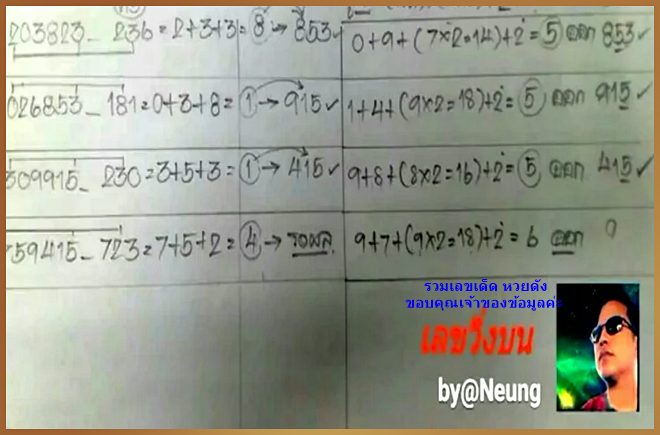 203823_ 236 = 2+3+3 = 8 → 853 ✓ 0+9+(7×2=14)+2 = 5 ออก 853 ✓
026853_ 181 = 0+3+8 = 1 → 915 ✓ 1+4+(9×2=18)+2 = 5 ออก 915 ✓
509915_ 230 = 3+5+3 = 1 → 415 ✓ 9+8+(8×2=16)+2 = 5 ออก 415 ✓
759415_ 723 = 7+5+2 = 4 → รอผล 9+7+(9×2=18)+2 = 6 ออก ?
รวมเลขเด็ด หวยดัง
ขอบคุณเจ้าของข้อมูลค่ะ
เลขวิ่งบน
by@Neung